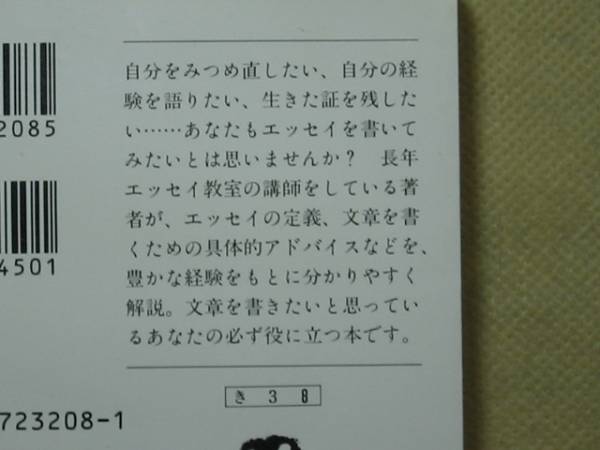 自分をみつめ直したい、自分の経
験を語りたい、生きた証を残した
い……あなたもエッセイを書いて
みたいとは思いませんか？　長年
エッセイ教室の講師をしている著
者が、エッセイの定義、文章を書
くための具体的アドバイスなどを、
豊かな経験をもとに分かりやすく
解説。文章を書きたいと思ってい
るあなたの必ず役に立つ本です。
2085
4501
き 3 8
723208-1